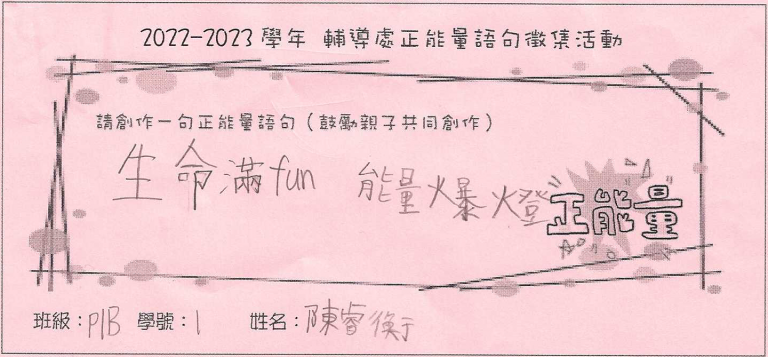 2022-2023學年 輔導處正能量語句徵集活動
請創作一句正能量語句（鼓勵親子共同創作）
生命滿fun 能量爆燈
正能量
班級：P1B 學號：1 姓名：陳睿衡